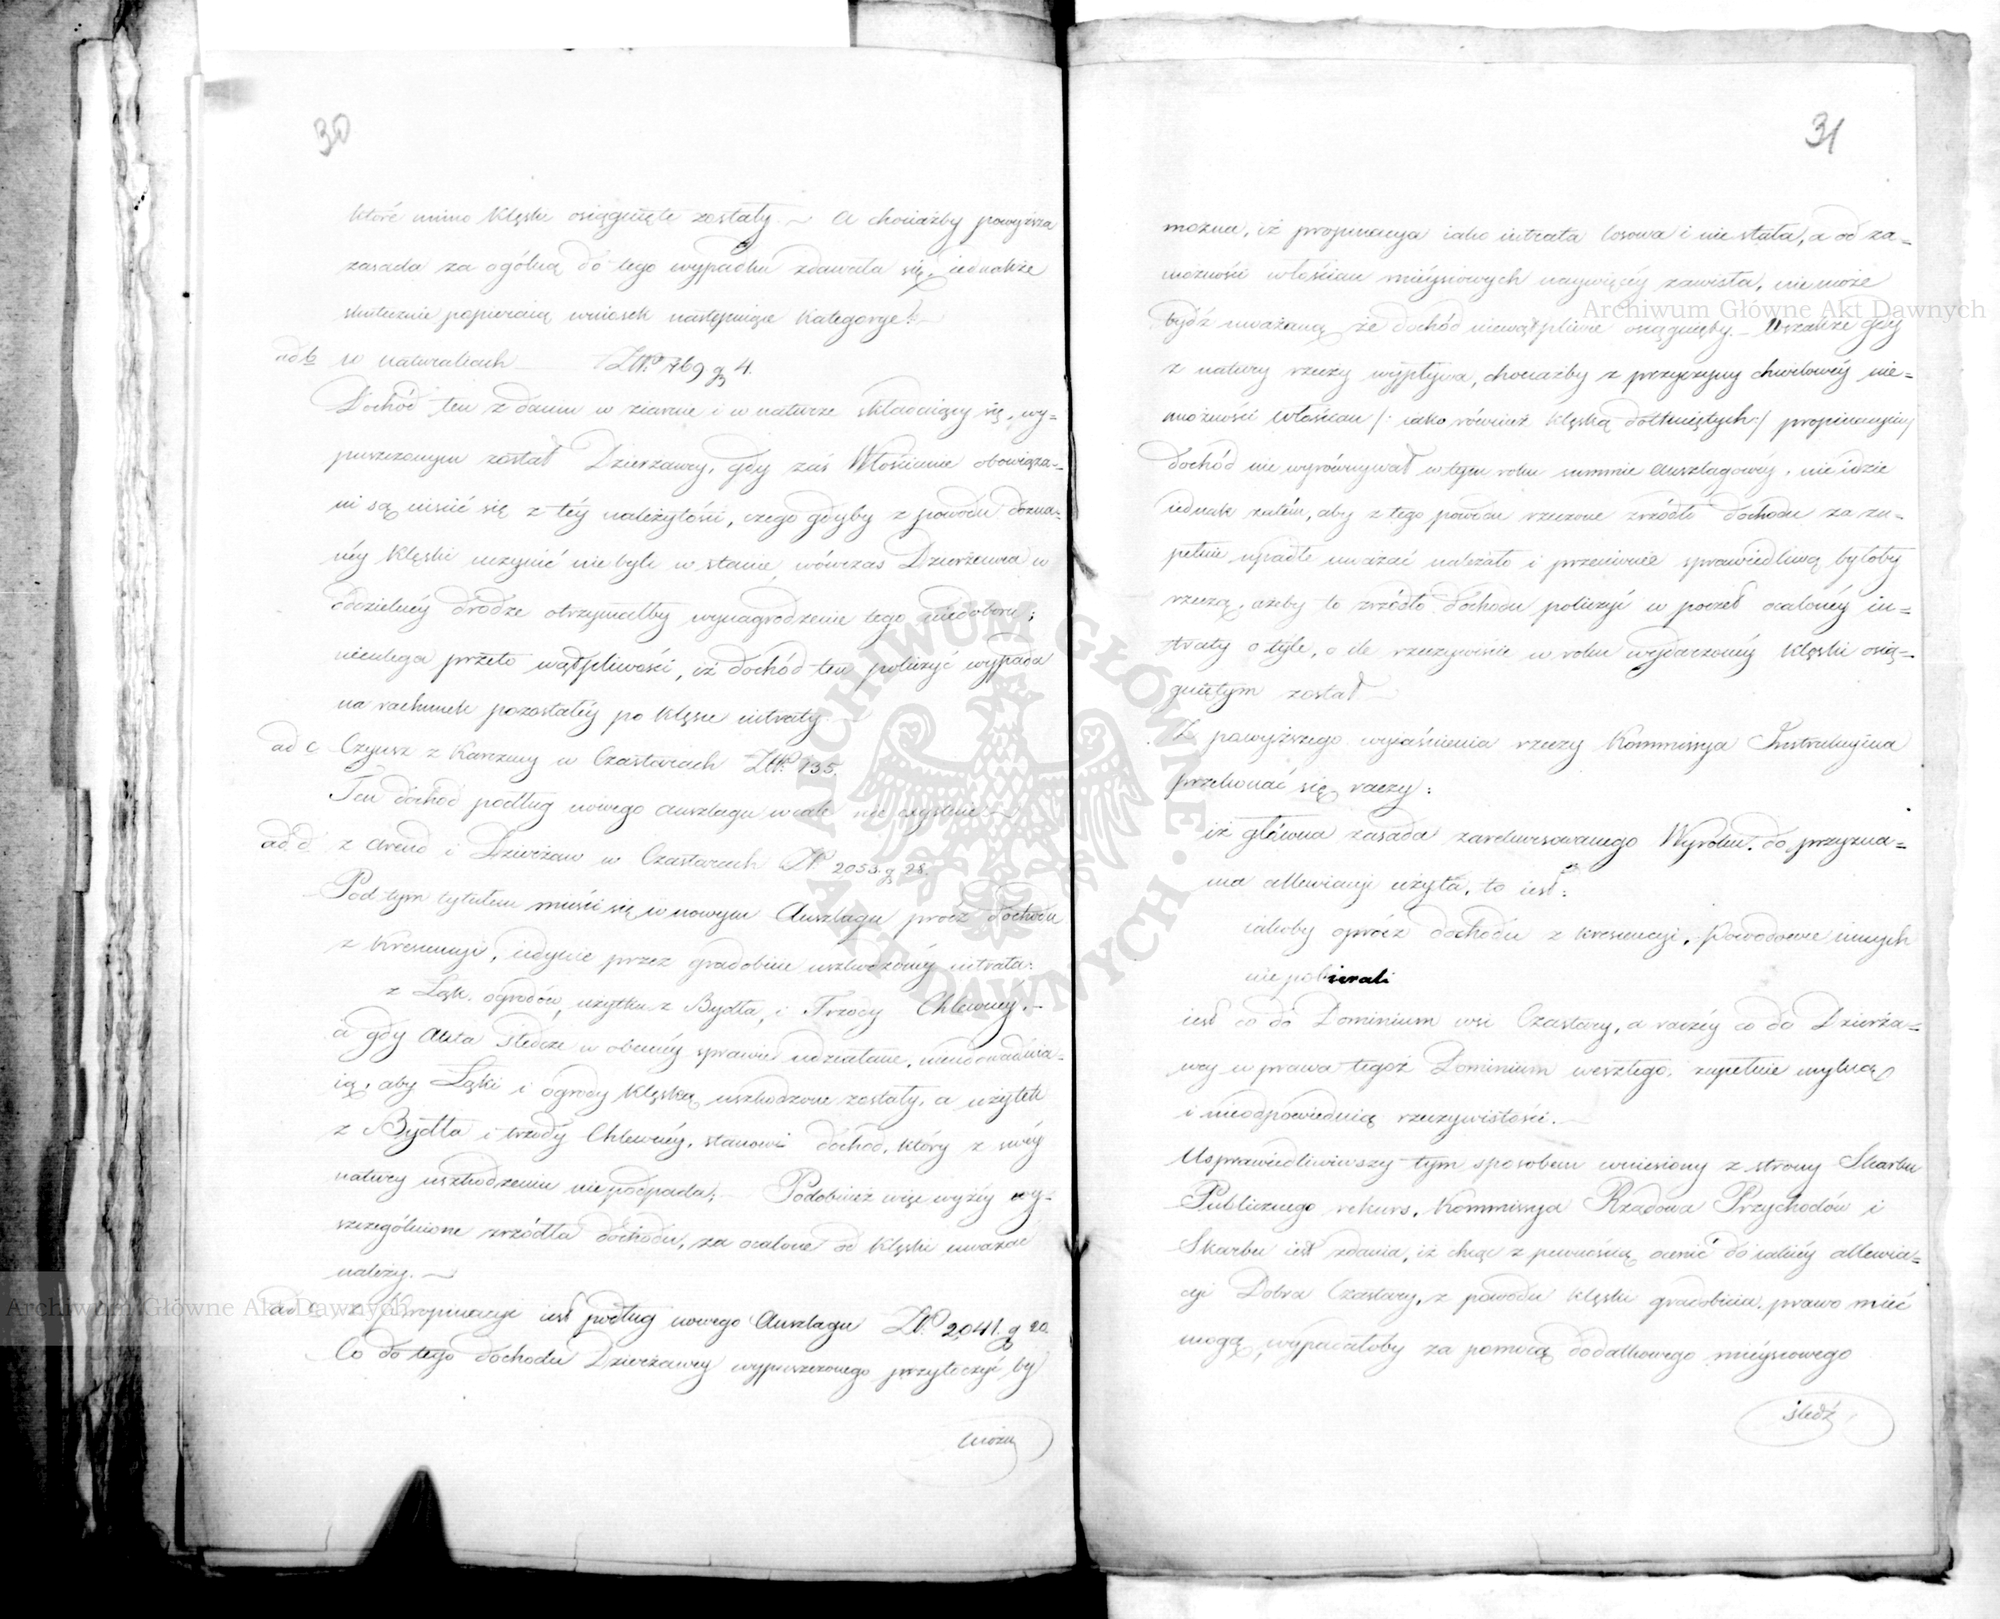 30
które mimo klęski osiągnięte zostały. — A chociażby powyższa
zasada za ogólną do tego wypadku zdawała się, iednakże
skutecznie popieraią wniosek następuiące kategorye: —
ad b w naturaliach — Złp. 769 g 4.
Dochód ten z danin w ziarnie i w naturze składaiący się, wy-
puszczonym został Dzierżawcy, gdy zaś Włościanie obowiąza-
ni są uiścić się z téy należytości, czego gdyby z powodu dozna-
néy klęski uczynić nie byli w stanie, wówczas Dzierżawca w
oddzielnéy drodze otrzymałby wynagrodzenie tego niedoboru;
nieulega przeto wątpliwości, iż dochód ten policzyć wypada
na rachunek pozostałéy po klęsce intraty. —
ad c Czynsz z Karczmy w Czastarach Złp. 135.
Ten dochód podług nowego Auszlagu wcale nie exystuie —
ad d z Arend i Dzierżaw w Czastarach Złp. 2053 g 28.
Pod tym tytułem mieści się w nowym Auszlagu prócz dochodu
z Krescencyi, iedynie przez gradobicie uszkodzonéy intrata:
z Łąk, ogrodów, użytku z Bydła, i Trzody Chlewnéy. —
a gdy Akta śledcze w obecnéy sprawie udziałane, nieudowadnia-
ią, aby Łąki i ogrody klęską uszkodzone zostały, a użytek
z Bydła i trzody Chlewnéy, stanowi dochód, który z swéy
natury uszkodzeniu niepodpada; — Podobnież więc wyżéy wy-
szczególnione zrzódła dochodu, za ocalone od klęski uważać
należy. —
ad e z Propinacyi iest podług nowego Auszlagu Złp. 2041. g 20.
Co do tego dochodu Dzierżawcy wypuszczonego przytoczyć by
można
31
można, iż propinacya iako intrata losowa i nie stała, a od za-
możności włościan mieyscowych naywięcéy zawisła, nie może
bydź uważaną że dochód niewątpliwie osiągnięty. — Wszakże gdy
z natury rzeczy wypływa, chociażby z przyczyny chwilowéy nie-
możności Włościan /: iako również klęską dotkniętych :/ propinacyiny
dochód nie wyrównywał w tym roku summie Auszlagowéy, nie idzie
iednak zatém, aby z tego powodu rzeczone zrzódło dochodu za zu-
pełnie upadłe uważać należało i przeciwnie sprawiedliwą byłoby
rzeczą, ażeby to zrzódło dochodu policzyć w poczet ocalonéy in-
traty o tyle, o ile rzeczywiście w roku wydarzonéy klęski osią-
gniętym został —
Z powyższego wyiaśnienia rzeczy Kommissya Instrukcyina
przekonać się raczy:
iż główna zasada zarekursowanego Wyroku, do przyzna-
nia allewiacyi użyta, to iest:
iakoby oprócz dochodu z krescencyi, Powodowie innych
nie pobierali
iest co do Dominium wsi Czastary, a raczéy co do Dzierża-
wcy w prawa tegoż Dominium weszłego, zupełnie mylną
i nieodpowiednią rzeczywistości. —
Usprawiedliwiwszy tym sposobem wniesiony z strony Skarbu
Publicznego rekurs, Kommissya Rządowa Przychodów i
Skarbu iest zdania, iż chcąc z pewnością ocenić do iakiéy allewia-
cyi Dobra Czastary, z powodu klęski gradobicia, prawo mieć
mogą, wypadałoby za pomocą dodatkowego mieyscowego
śledz
Archiwum Główne Akt Dawnych
Archiwum Główne Akt Dawnych
ARCHIWUM GŁÓWNE AKT DAWNYCH